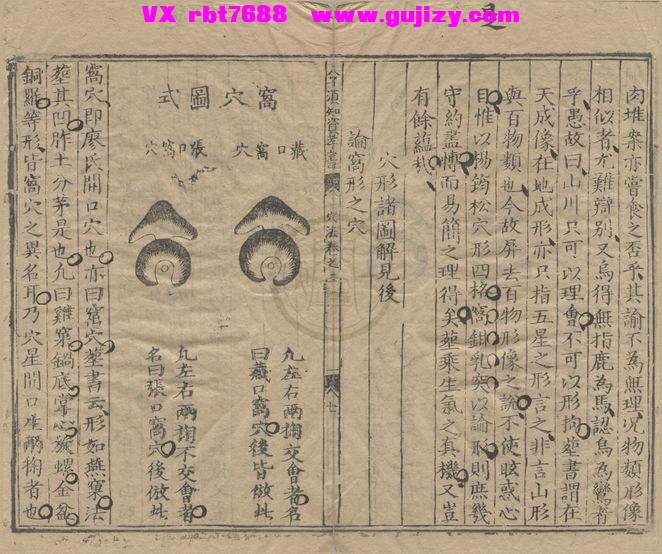 VX rbt7688 www.gujizy.com
肉堆案亦嘗食之否乎其諭不為無理况物類形像
相似者尤難辯别又烏得無指鹿為馬認烏為鸞者
乎愚故曰山川只可以理會不可以形拘葬書謂在
天成像在地成形亦只指五星之形言之非言山形
與百物類也今故屏去百物形像之說不使眩惑心
目惟以楊筠松穴形四格窩鉗乳突以論形則庶幾
守約盡博而易簡之理得矣葬乘生氣之真機又豈
有餘蘊哉
穴形諸圖解見後
論窩形之穴
人子須知資孝書
穴法卷之
七
窩穴圖式
藏口窩穴
凢左右兩掬交會者名
曰藏口窩穴後皆倣此
張口窩穴
凢左右兩掬不交會者
名曰張口窩穴後倣此
窩穴即廖氏開口穴也亦曰窟穴葬書云形如燕窠法
葬其凹胙土分茅是也凢曰雞窠鍋底掌心旋螺金盆
銅羅等形皆窩穴之異名耳乃穴星開口生兩掬者也